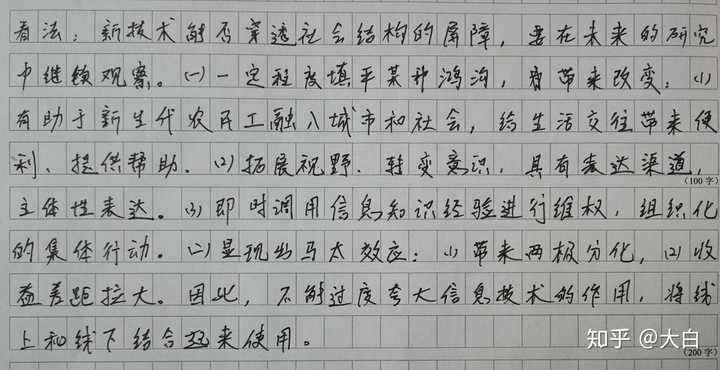 看法：新技术能否穿透社会结构的屏障，要在未来的研究
中继续观察。(一)一定程度填平某种鸿沟，有带来改变：(1)
有助于新生代农民工融入城市和社会，给生活交往带来便
利、提供帮助．(2)拓展视野．转变意识，具有表达渠道，
(100字)
主体性表达。(3)即时调用信息知识经验进行维权，组织化
的集体行动。(二)显现出马太效应：(1)带来两极分化，(2)收
益差距拉大。因此，不能过度夸大信息技术的作用，将线
上和线下结合起来使用。
知乎 @大白
(200字)